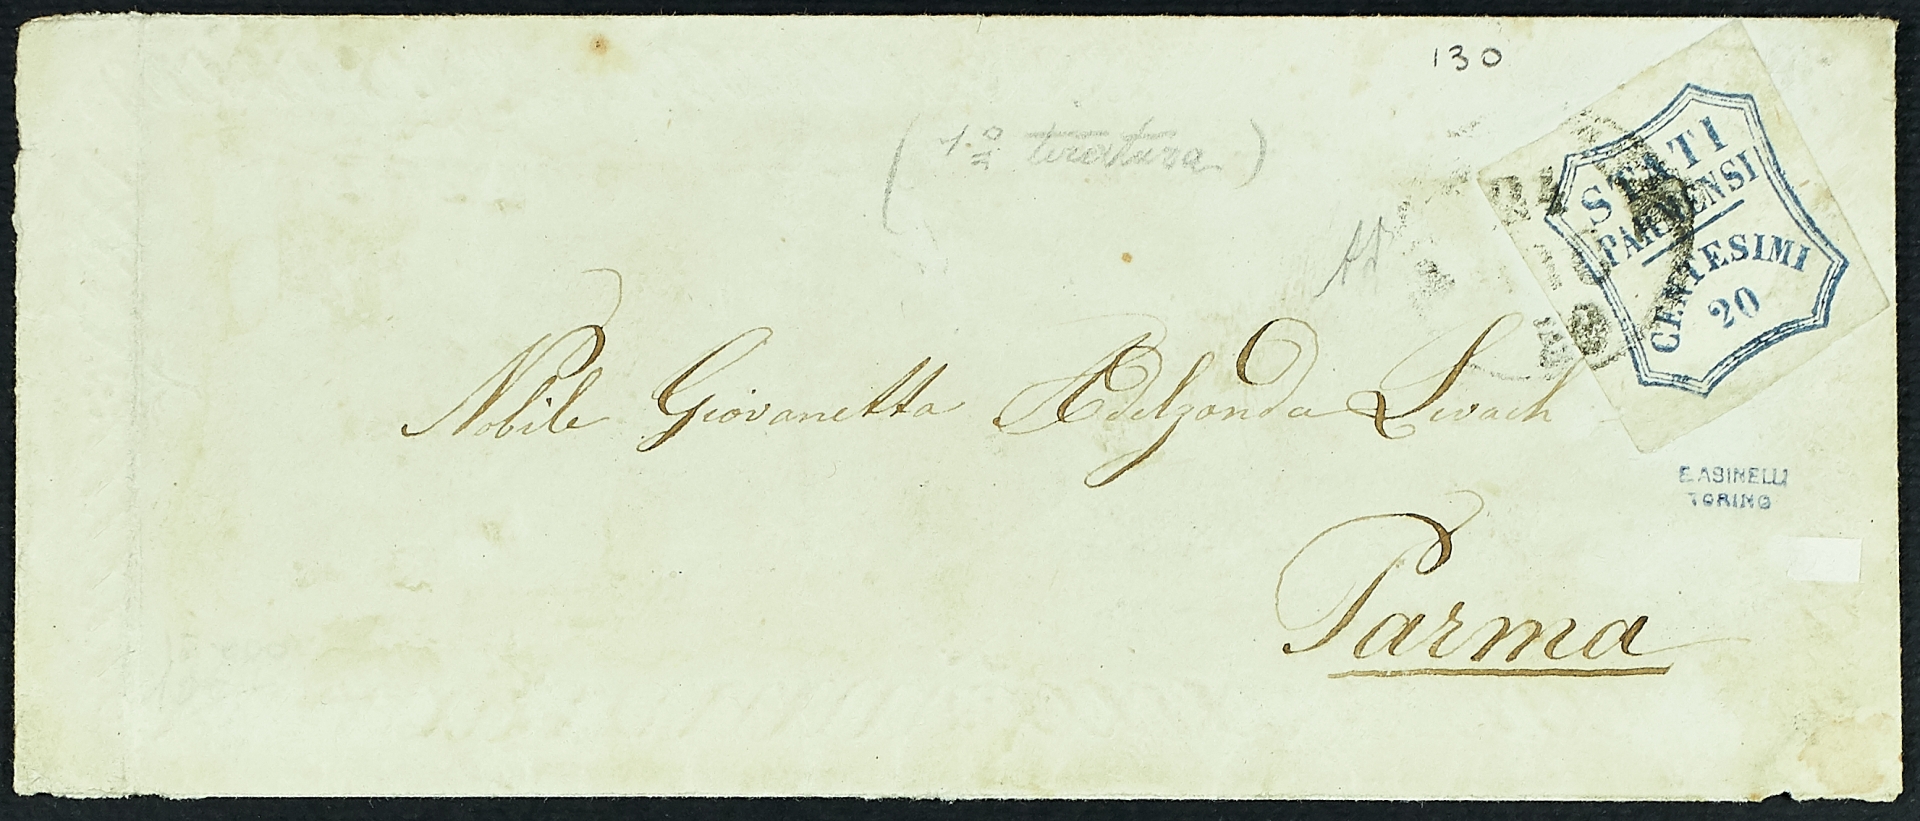 130
(1ª tiratura)
STATI
PARMENSI
CENTESIMI
20
Nobile Giovanetta Adelgonda Levach
E. ASINELLI
TORINO
Parma